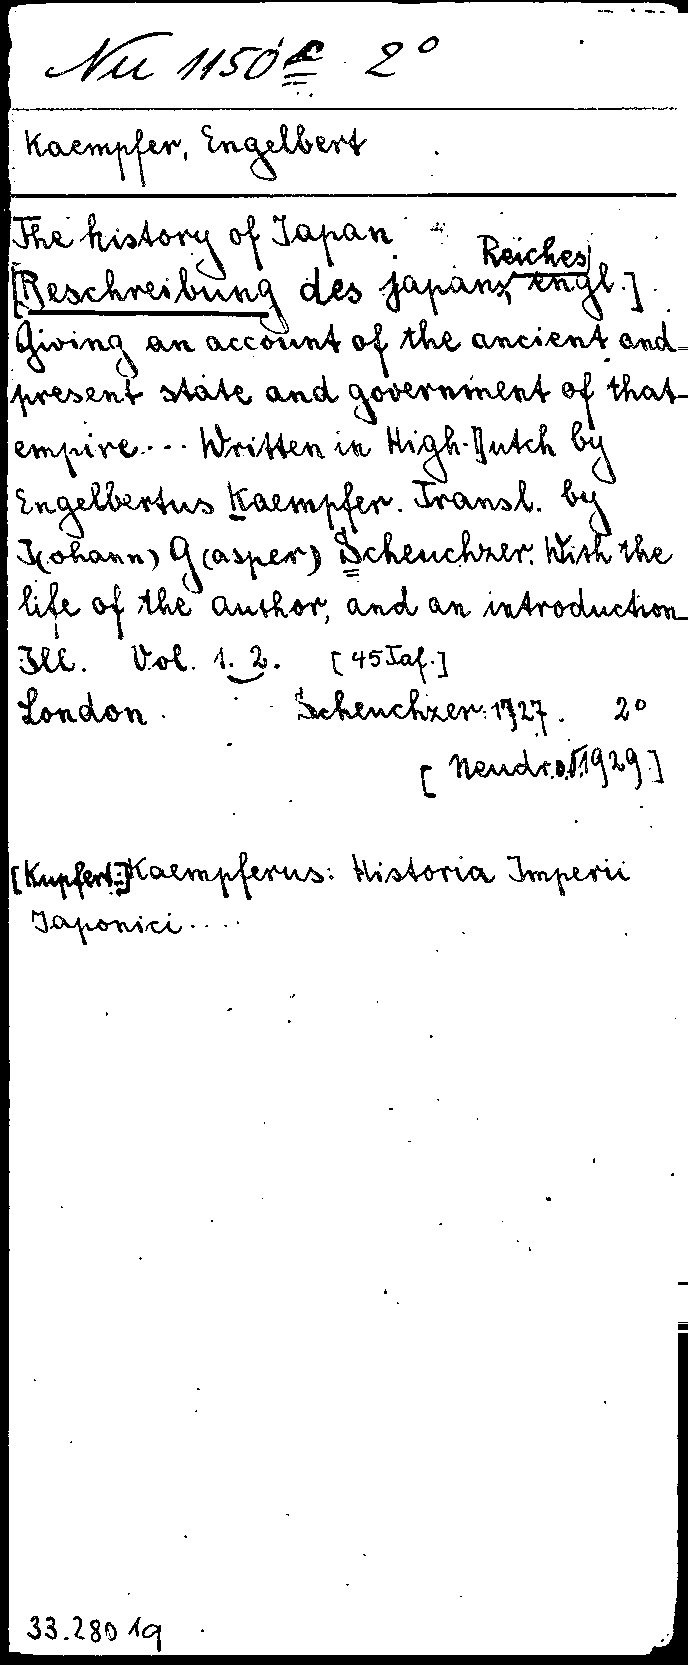 Nu 1150 c 2°
Kaempfer, Engelbert
The history of Japan
Reiches
[Beschreibung des japans, engl.]
Giving an account of the ancient and
present state and government of that
empire.... Written in High-Dutch by
Engelbertus Kaempfer. Transl. by
J(ohann) G(asper) Scheuchzer. With the
life of the author, and an introduction
Ill. Vol. 1. 2. [45 Taf.]
London Scheuchzer: 1727. 2°
[Neudr. 1929]
[Kupfert.:] Kaempferus: Historia Imperii
Japonici....
33.28019